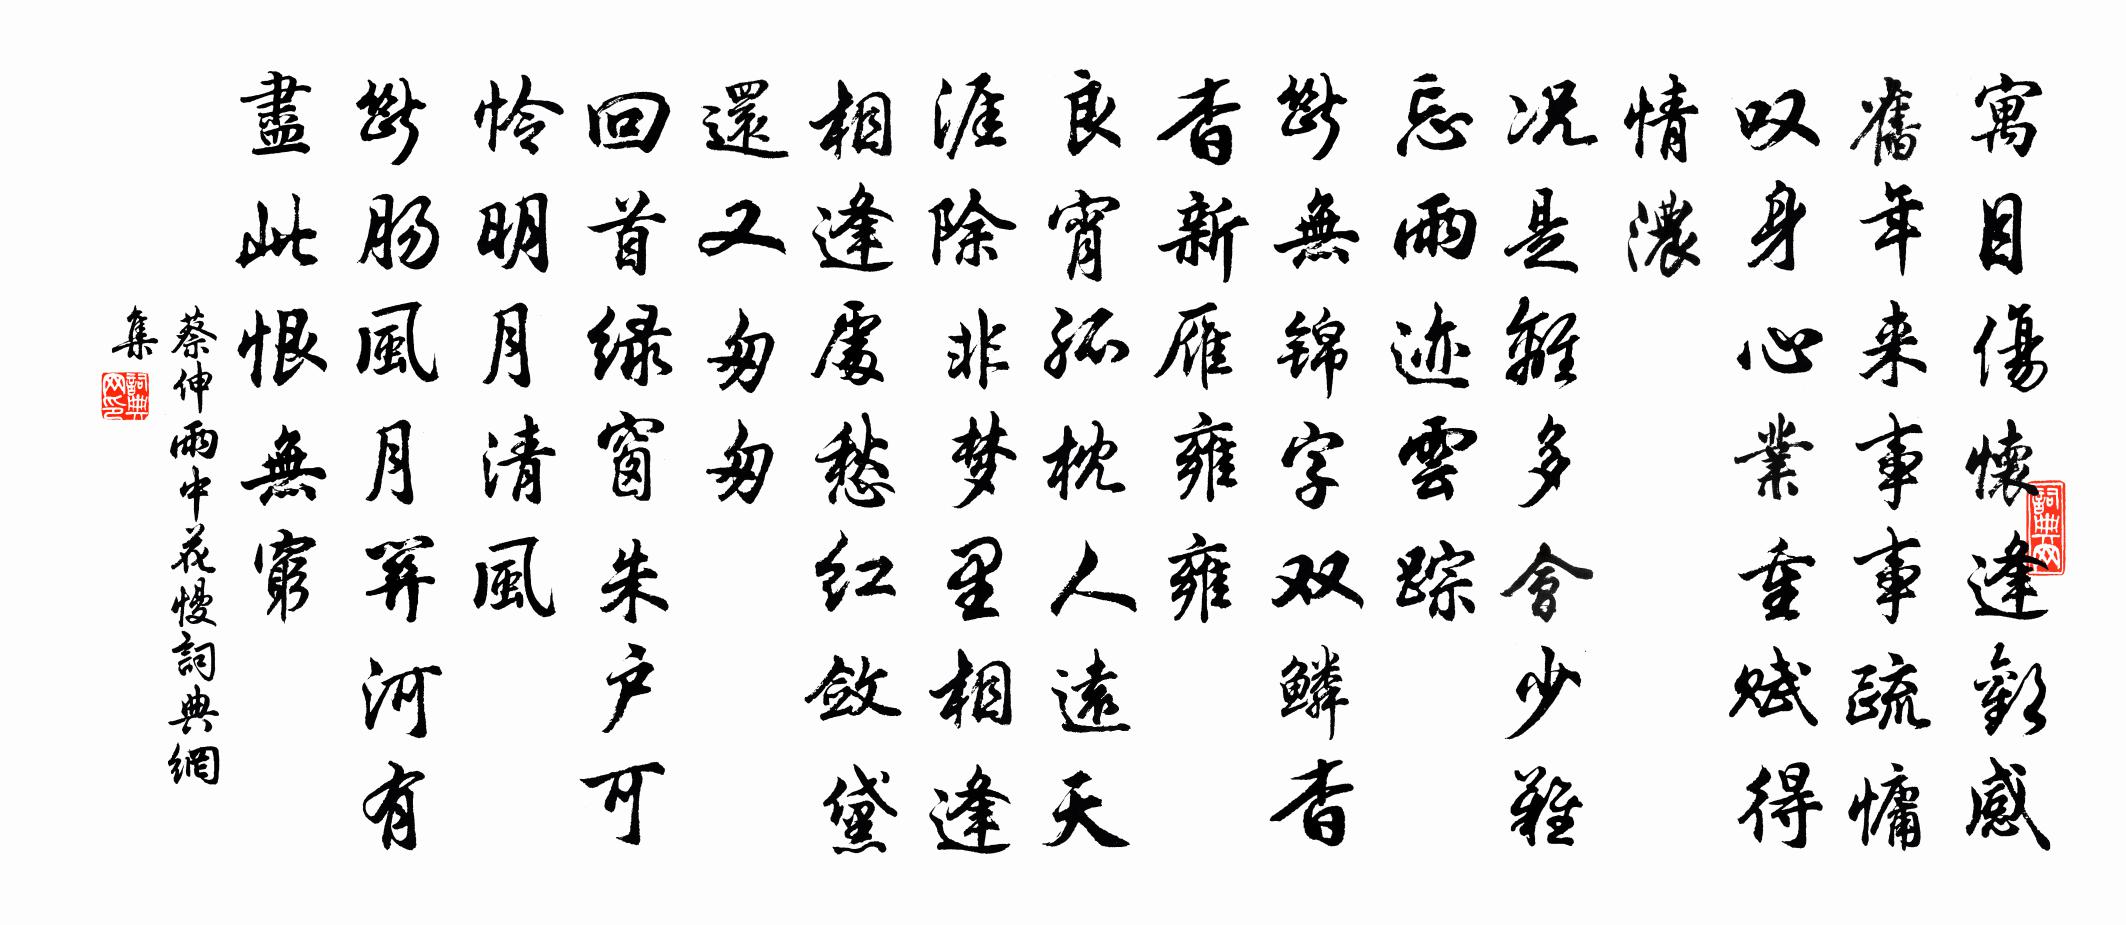 寓目傷懷逢歡感
舊年来事事疏慵
叹身心業重赋得
情濃
况是離多會少難
忘雨迹雲踪
斷無锦字双鳞杳
杳新雁雍雍
良宵孤枕人遠天
涯除非梦里相逢
相逢處愁红敛黛
還又匆匆
回首绿窗朱户可
怜明月清風
斷肠風月關河有
盡此恨無窮
蔡伸雨中花慢詞典網
集
詞典网
詞典网印